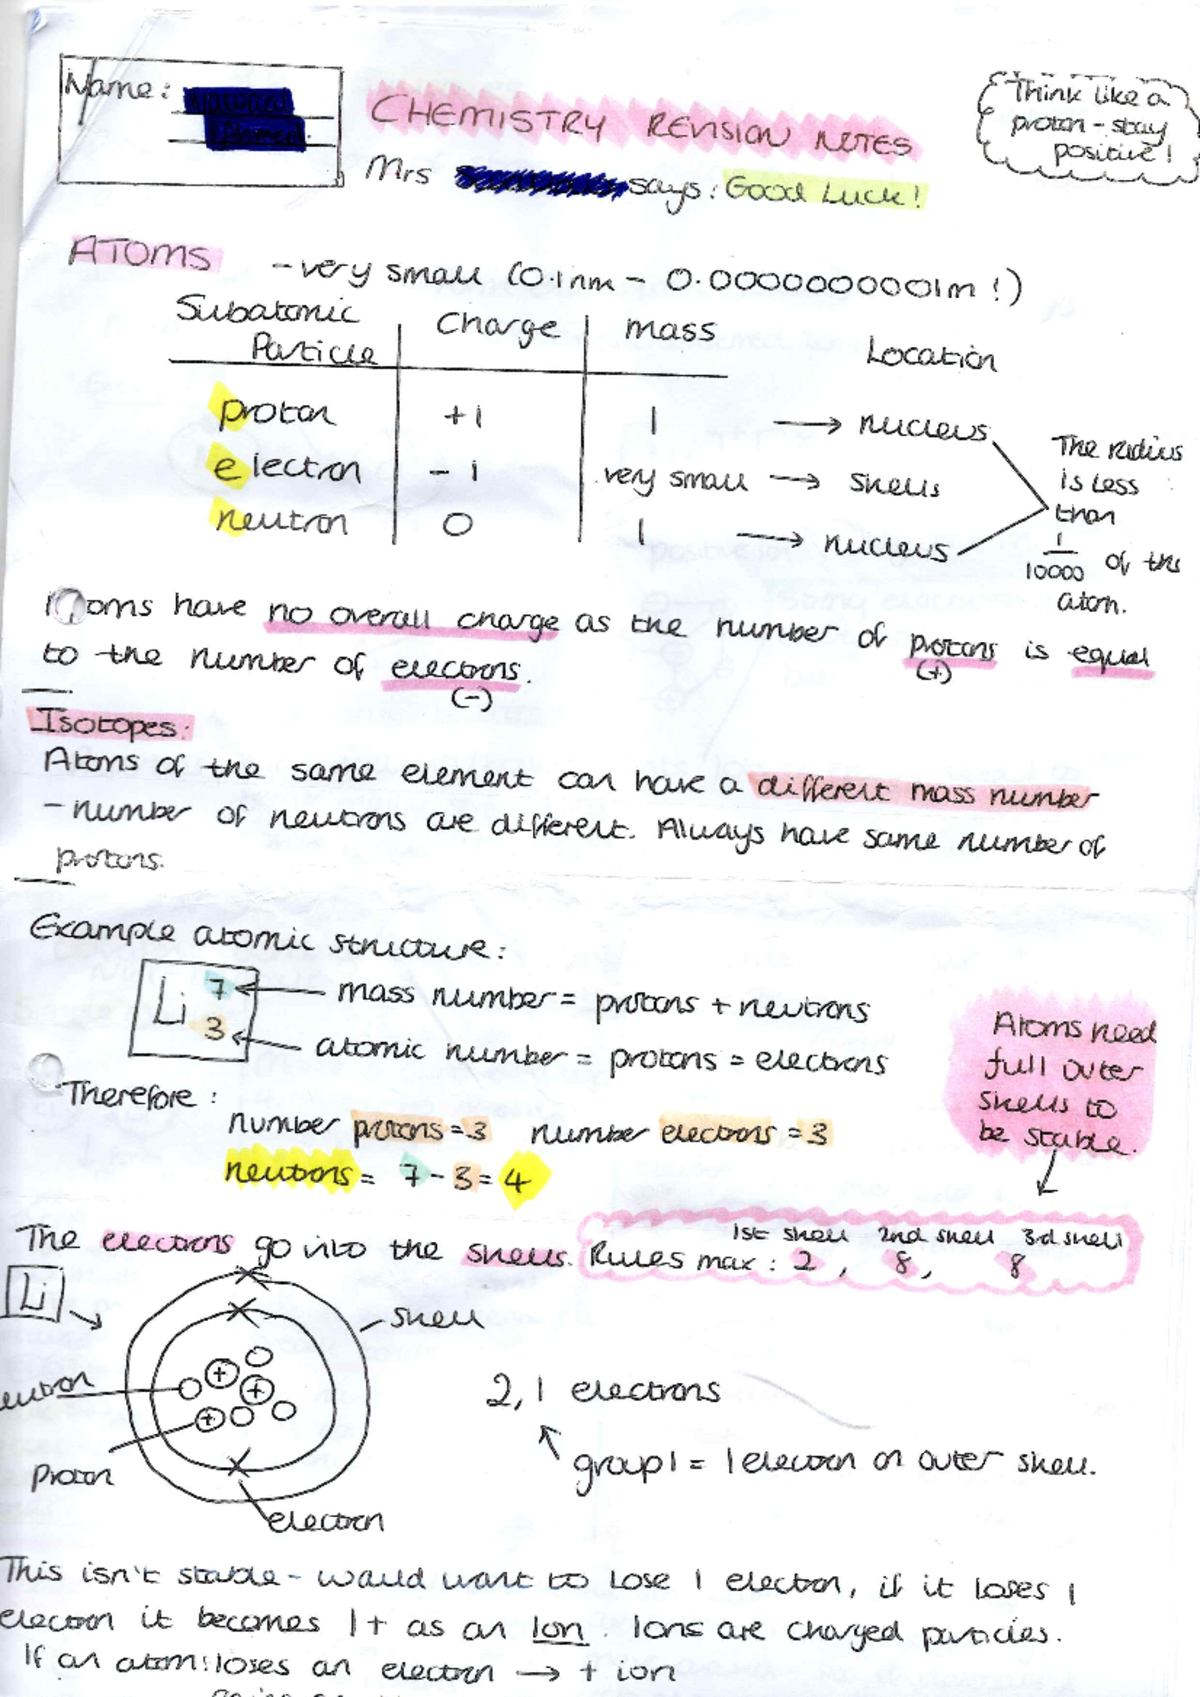 Name:
CHEMISTRY REVISION NOTES
Think like a
proton - stay
positive!
Mrs says: Good Luck!
ATOMS - very small (0.1nm - 0.0000000001m!)
Subatomic Particle | Charge | mass Location
proton +1 1 → nucleus
electron - 1 very small → shells
neutron 0 1 → nucleus
The radius
is less
than
1/10000 of the
atom.
oms have no overall charge as the number of protons is equal
(+)
to the number of electrons.
(-)
Isotopes:
Atoms of the same element can have a different mass number
- number of neutrons are different. Always have same number of
protons.
Example atomic structure:
Li 7 ← mass number = protons + neutrons
3 ← atomic number = protons = electrons
Atoms need
full outer
shells to
be stable.
Therefore:
number protons = 3 number electrons = 3
neutrons = 7 - 3 = 4
1st shell 2nd shell 3rd shell
The electrons go into the shells. Rules max: 2, 8, 8
Li
shell
eutron
+
+
+
proton
electron
2, 1 electrons
group 1 = 1 electron on outer shell.
This isn't stable - would want to lose 1 electron, if it loses 1
electron it becomes 1+ as an Ion. Ions are charged particles.
If an atom: loses an electron → + ion